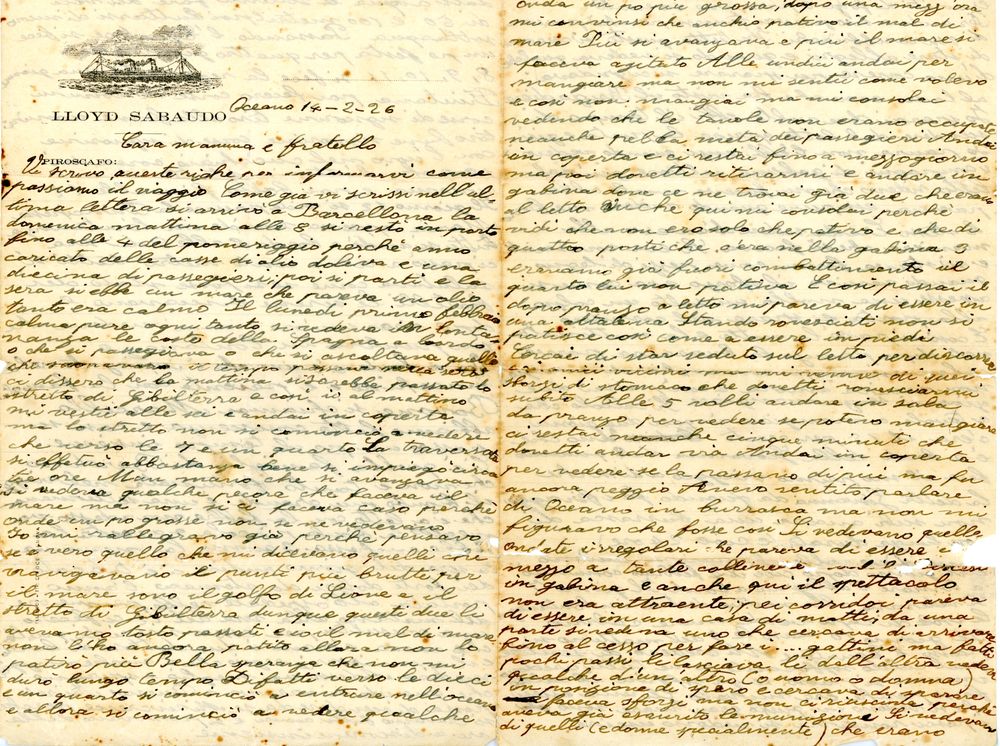 LLOYD SABAUDO
Oceano 14-2-26
Cara mamma e fratello
PIROSCAFO:
Vi scrivo queste righe per informarvi come
passiamo il viaggio Come già vi scrissi nell'ul-
tima lettera si arrivò a Barcellona la
domenica mattina alle 8 si restò in porto
fino alle 4 del pomeriggio perché anno
caricato delle casse di olio doliva e una
diecina di passegieri, poi si partì e la
sera si ebbe un mare che pareva un olio
tanto era calmo Il lunedì primo febbraio
calma pure ogni tanto si vedeva in lonta
nanza le coste della Spagna a bordo
o che si passegiava o che si ascoltava quelli
che suonavano il tempo passava nella sera
ci dissero che la mattina si sarebbe passato lo
stretto di Gibilterra e così io al mattino
mi vestì alle sei e andai in coperta
ma lo stretto non si cominciò a vedere
che verso le 7 e un quarto La traversata
si effetuò abbastanza bene si impiegò circa
tre ore Man mano che si avanzava
si vedeva qualche pecora che faceva il
mare ma non si ci faceva caso perché
onde un po grosse non se ne vedevano
Io mi rallegravo già perché pensavo
se è vero quello che mi dicevano quelli che
navigavano il punti più brutti per
il mare sono il golfo di Lione e il
stretto di Gibilterra dunque questi due li
avevamo tosto passati e io il mal di mare
non l'ho ancora patito allora non lo
patirò più Bella speranza che non mi
durò lungo tempo Difatti verso le dieci
e un quarto si cominciò a entrare nell'oceano
e allora si cominciò a vedere qualche
onda un po più grossa, dopo una mezz'ora
mi convinsi che anch'io pativo il mal di
mare Più si avanzava e più il mare si
faceva agitato Alle undici andai per
mangiare ma non mi sentii come volevo
e così non mangiai ma mi consolai
vedendo che le tavole non erano occupate
neanche pella metà dei passegieri Andai
in coperta e ci restai fino a mezzogiorno
ma poi dovetti ritirarmi e andare in
gabina dove ce ne trovai già due che erano
al letto Anche qui mi consolai perché
vidi che non ero solo che pativo e che di
quattro posti che c'era nella gabina 3
eravamo già fuori combattimento il
quarto lui non pativa E così passai il
dopo pranzo a letto mi pareva di essere in
una altalena Stando rovesciati non si
patisce così come a essere in piedi
Cercai di star seduto sul letto per discorrere
coi miei vicini ma mi venne di quei
sforzi di stomaco che dovetti rovesciarmi
subito Alle 5 volli andare in sala
da pranzo per vedere se potevo mangiare
ci restai neanche cinque minuti che
dovetti andar via Andai in coperta
per vedere se la passavo di più ma fu
ancora peggio Avevo sentito parlare
di Oceano in burrasca ma non mi
figuravo che fosse così Si vedevano quelle
ondate irregolari che pareva di essere in
mezzo a tante colline
in gabina e anche qui il spettacolo
non era attraente, pei corridoi pareva
di essere in una casa di matti, da una
parte si vedeva uno che cercava di arrivare
fino al cesso per fare i .... gattini ma fatto
pochi passi li lasciava lì dall'altra vedevi
qualche d'un altro (o uomo o donna)
in posizione di sparo e cercava di sparare
faceva sforzi ma non ci riusciva perché
aveva già esaurito le munizioni Si vedevano
di quelli (e donne specialmente) che erano